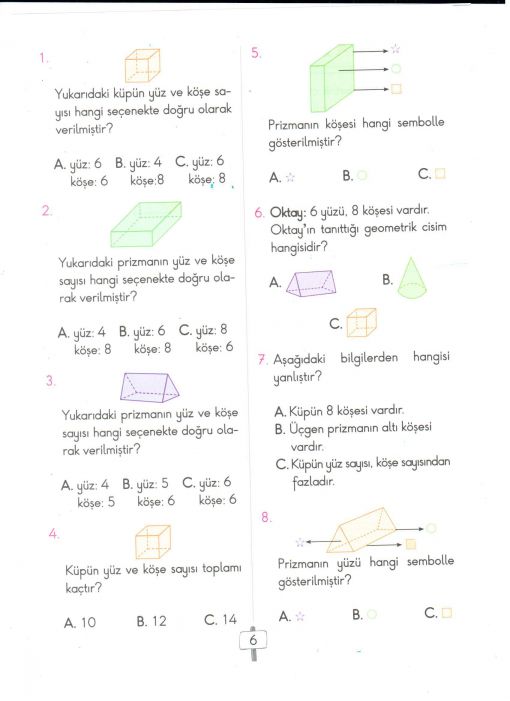 1.
Yukarıdaki küpün yüz ve köşe sa-
yısı hangi seçenekte doğru olarak
verilmiştir?
A. yüz: 6 B. yüz: 4 C. yüz: 6
köşe: 6 köşe:8 köşe: 8
2.
Yukarıdaki prizmanın yüz ve köşe
sayısı hangi seçenekte doğru ola-
rak verilmiştir?
A. yüz: 4 B. yüz: 6 C. yüz: 8
köşe: 8 köşe: 8 köşe: 6
3.
Yukarıdaki prizmanın yüz ve köşe
sayısı hangi seçenekte doğru ola-
rak verilmiştir?
A. yüz: 4 B. yüz: 5 C. yüz: 6
köşe: 5 köşe: 6 köşe: 6
4.
Küpün yüz ve köşe sayısı toplamı
kaçtır?
A. 10 B. 12 C. 14
5.
Prizmanın köşesi hangi sembolle
gösterilmiştir?
A. B. C.
6. Oktay: 6 yüzü, 8 köşesi vardır.
Oktay'ın tanıttığı geometrik cisim
hangisidir?
A. B.
C.
7. Aşağıdaki bilgilerden hangisi
yanlıştır?
A. Küpün 8 köşesi vardır.
B. Üçgen prizmanın altı köşesi
vardır.
C. Küpün yüz sayısı, köşe sayısından
fazladır.
8.
Prizmanın yüzü hangi sembolle
gösterilmiştir?
A. B. C.
6